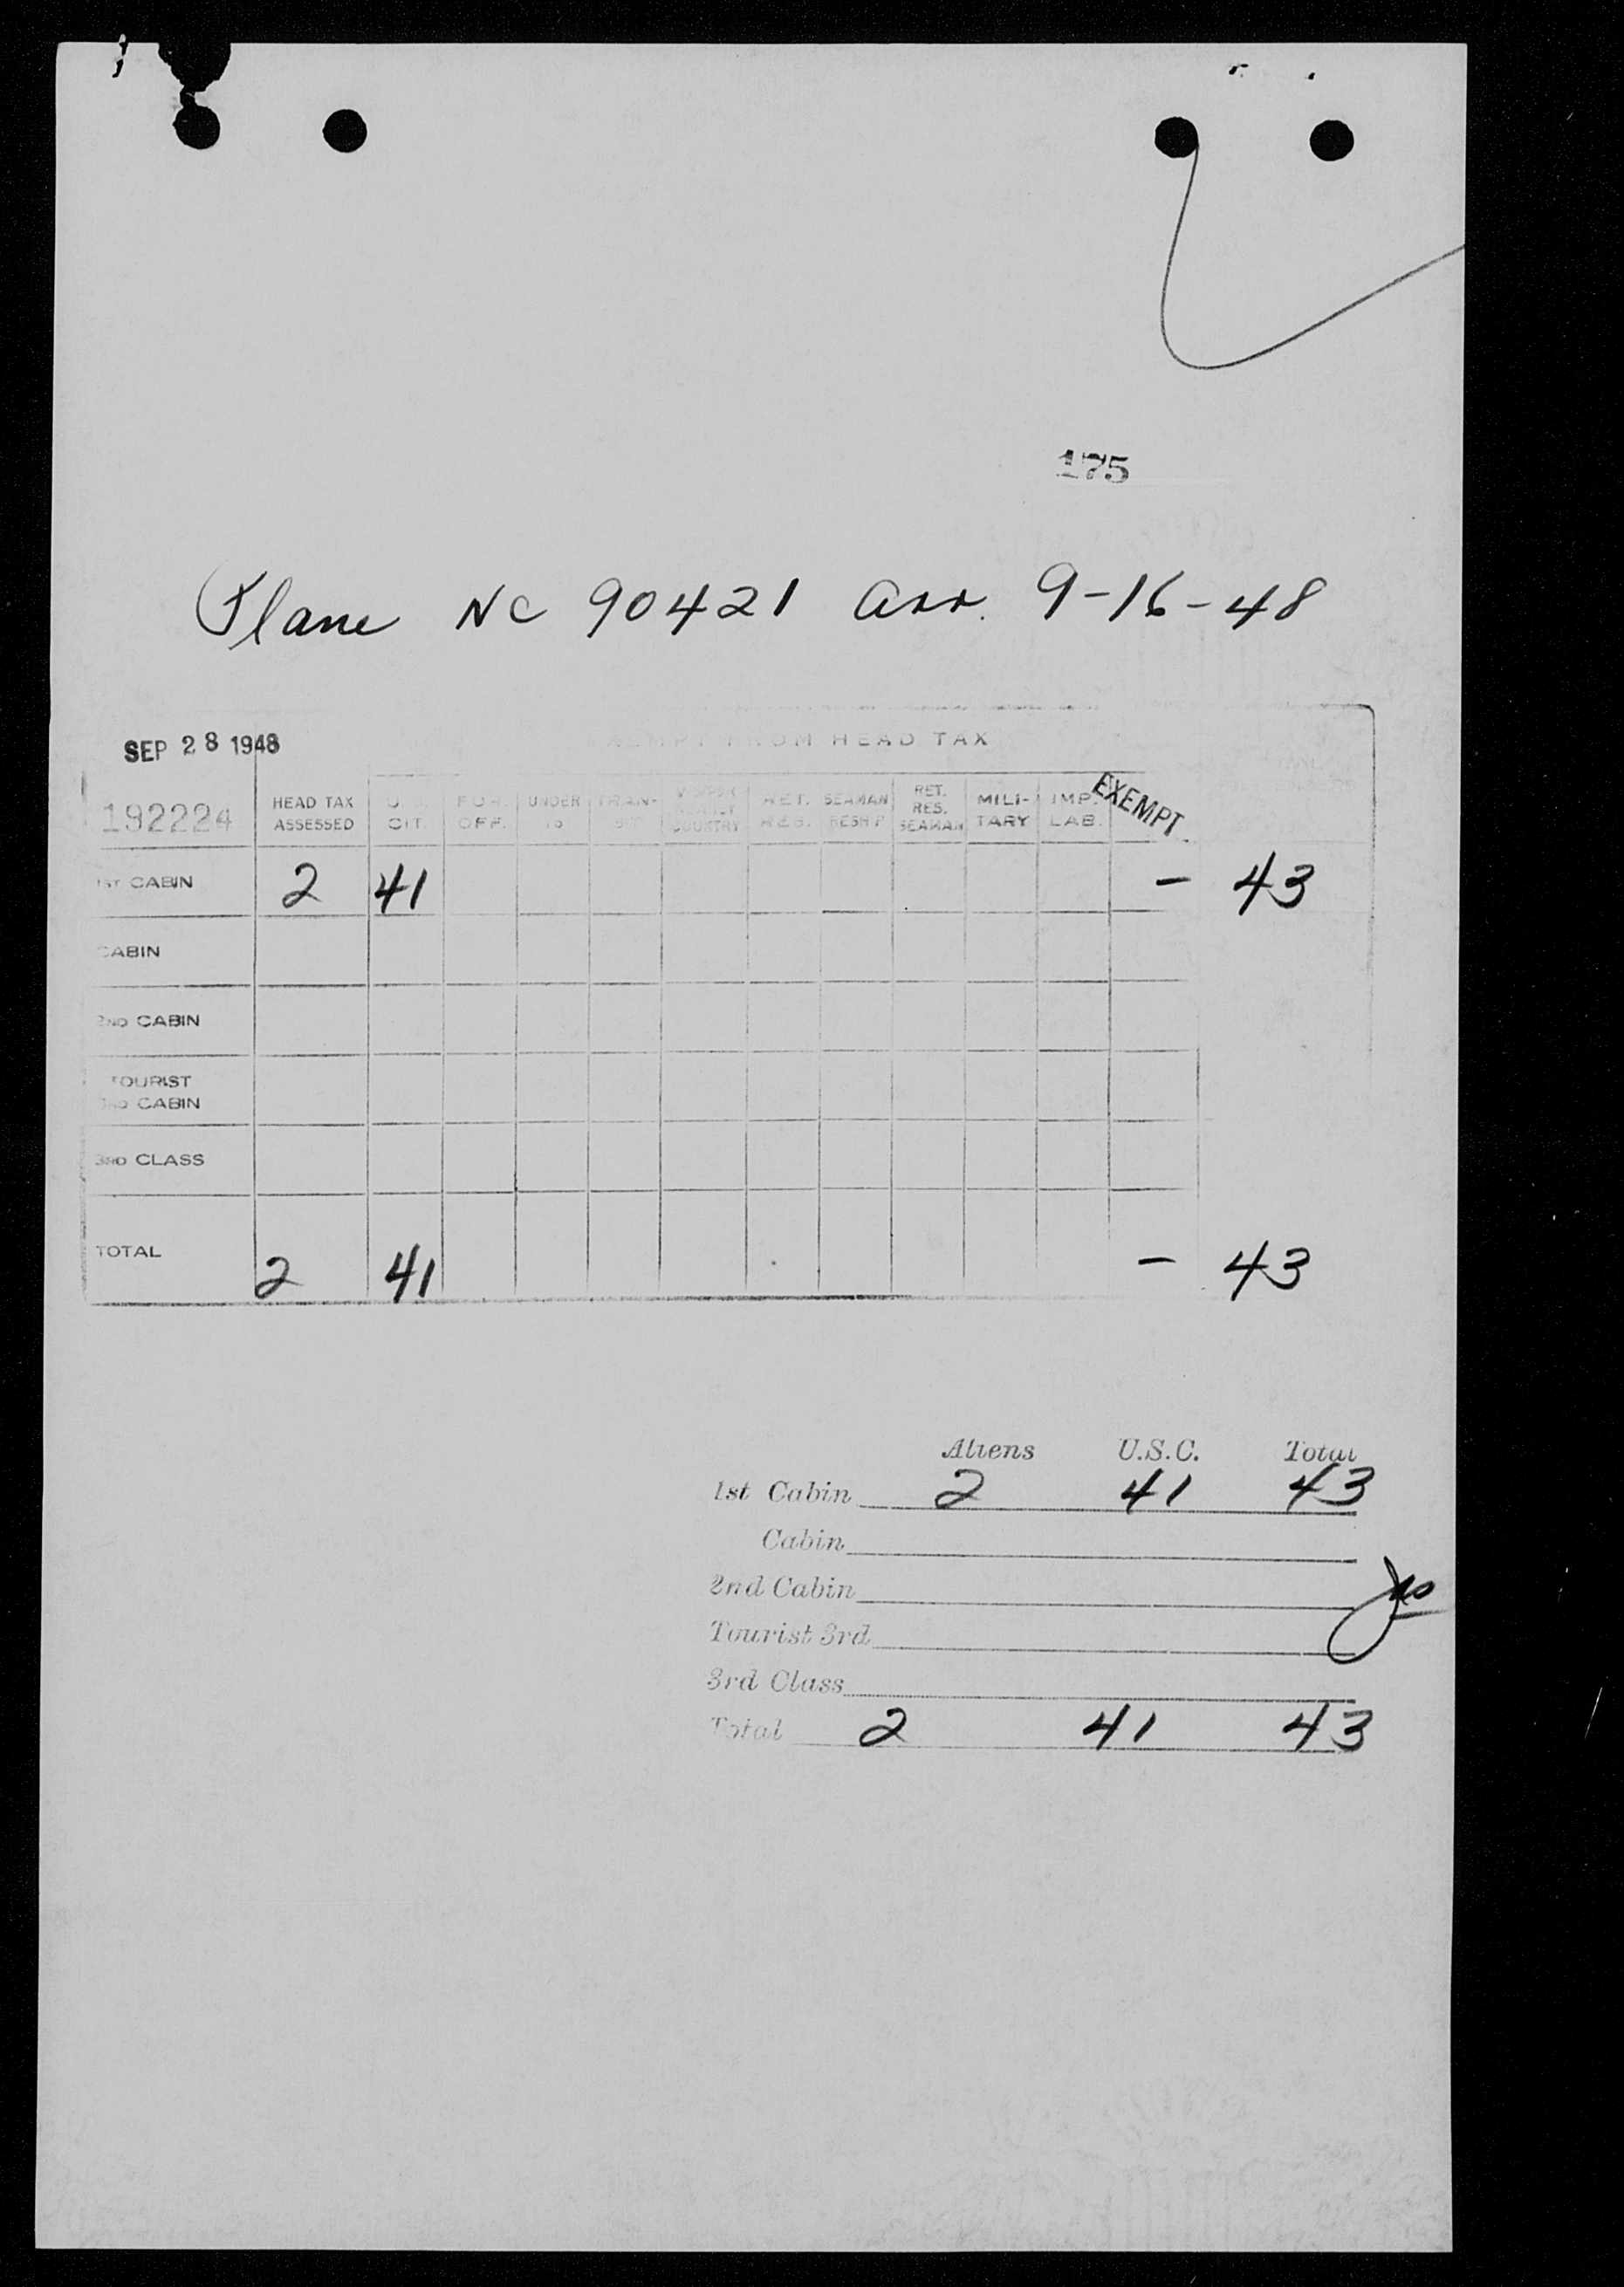 175
Plane NC 90421 arr. 9-16-48
SEP 28 1948
EXEMPT FROM HEAD TAX
192224 HEAD TAX ASSESSED U. CIT. FOR. OFF. UNDER 16 TRAN- COUNTRY RET. RES. SEAMAN RESHP RET. RES. SEAMAN MILI- TARY IMP. LAB. EXEMPT
1ST CABIN 2 41 - 43
CABIN
2ND CABIN
TOURIST
3RD CABIN
3RD CLASS
TOTAL 2 41 - 43
Aliens U.S.C. Total
1st Cabin 2 41 43
Cabin
2nd Cabin
Tourist 3rd
3rd Class
Total 2 41 43